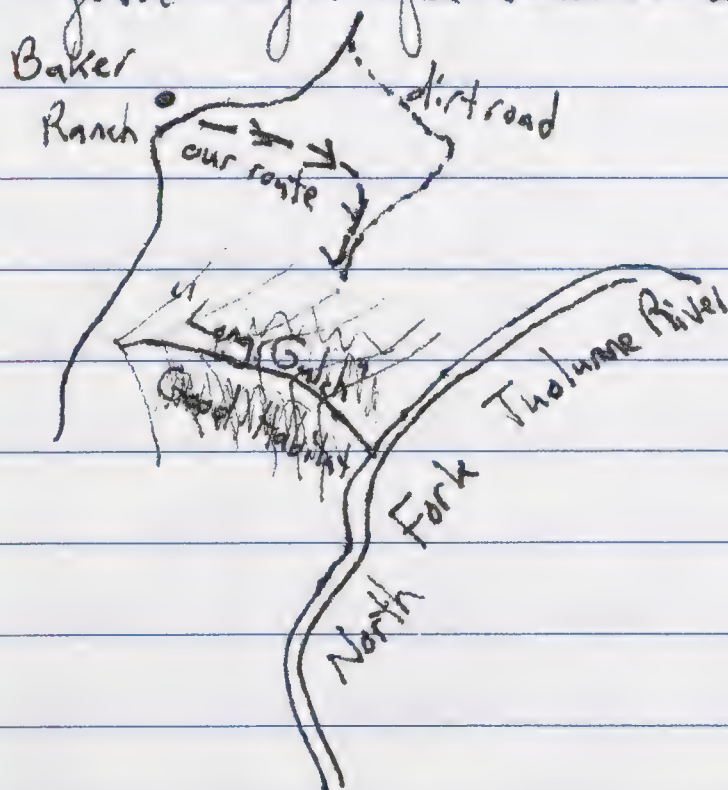 Baker
Ranch
dirt road
our route
"Long Gulch"
Good Habitat
North Fork Tuolumne River